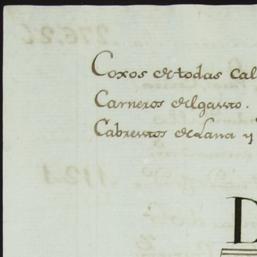 Coxos de todas cal
Carneros del gasto.
Cabrentos de Lana y
D